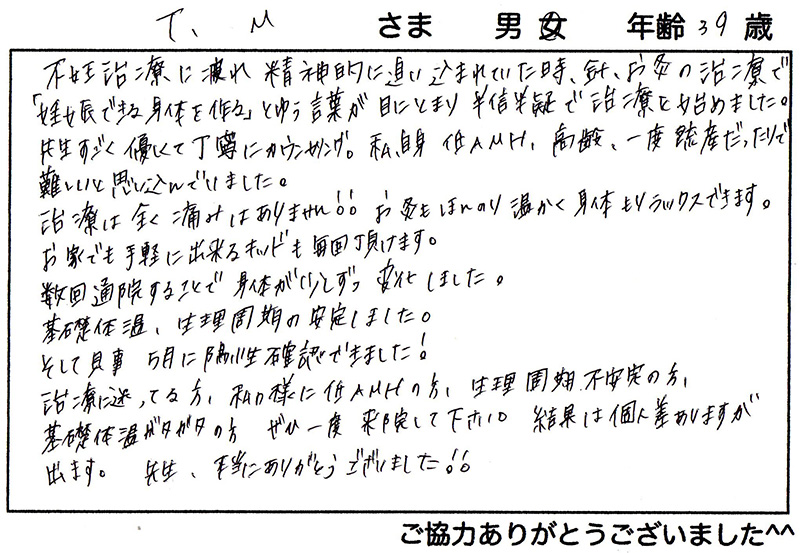 T. M さま 男 女 年齢 39 歳
不妊治療に疲れ 精神的に追い込まれていた時、針、お灸の治療で
「妊娠できる身体を作る」とゆう言葉が目にとまり 半信半疑で治療を始めました。
先生すごく優しくて丁寧にカウンセリング。私自身 低AMH、高齢、一度流産だったりで
難しいと思い込んでいました。
治療は全く痛みはありません!! お灸もほんのり温かく身体もリラックスできます。
お家でも手軽に出来るキッドも毎回頂けます。
数回通院することで身体が少しずつ変化しました。
基礎体温、生理周期の安定しました。
そして見事 5月に陽性確認できました!
治療に迷ってる方、私の様に低AMHの方、生理周期不安定の方、
基礎体温ガタガタの方 ぜひ一度 来院して下さい。 結果は個人差ありますが
出ます。 先生、本当にありがとうございました!!
ご協力ありがとうございました^^